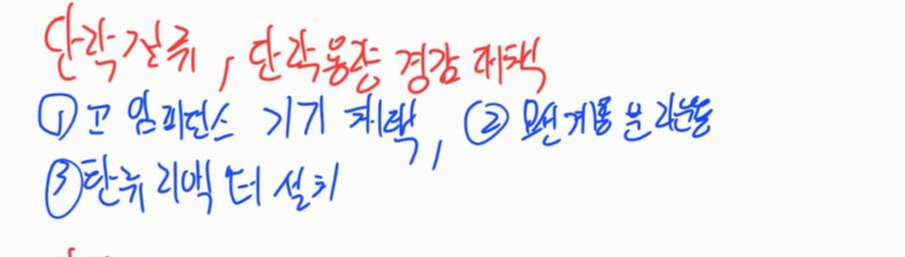 단락전류, 단락용량 경감 대책
① 고 임피던스 기기 채택, ② 모선계통 분리운용
③ 한류 리액터 설치